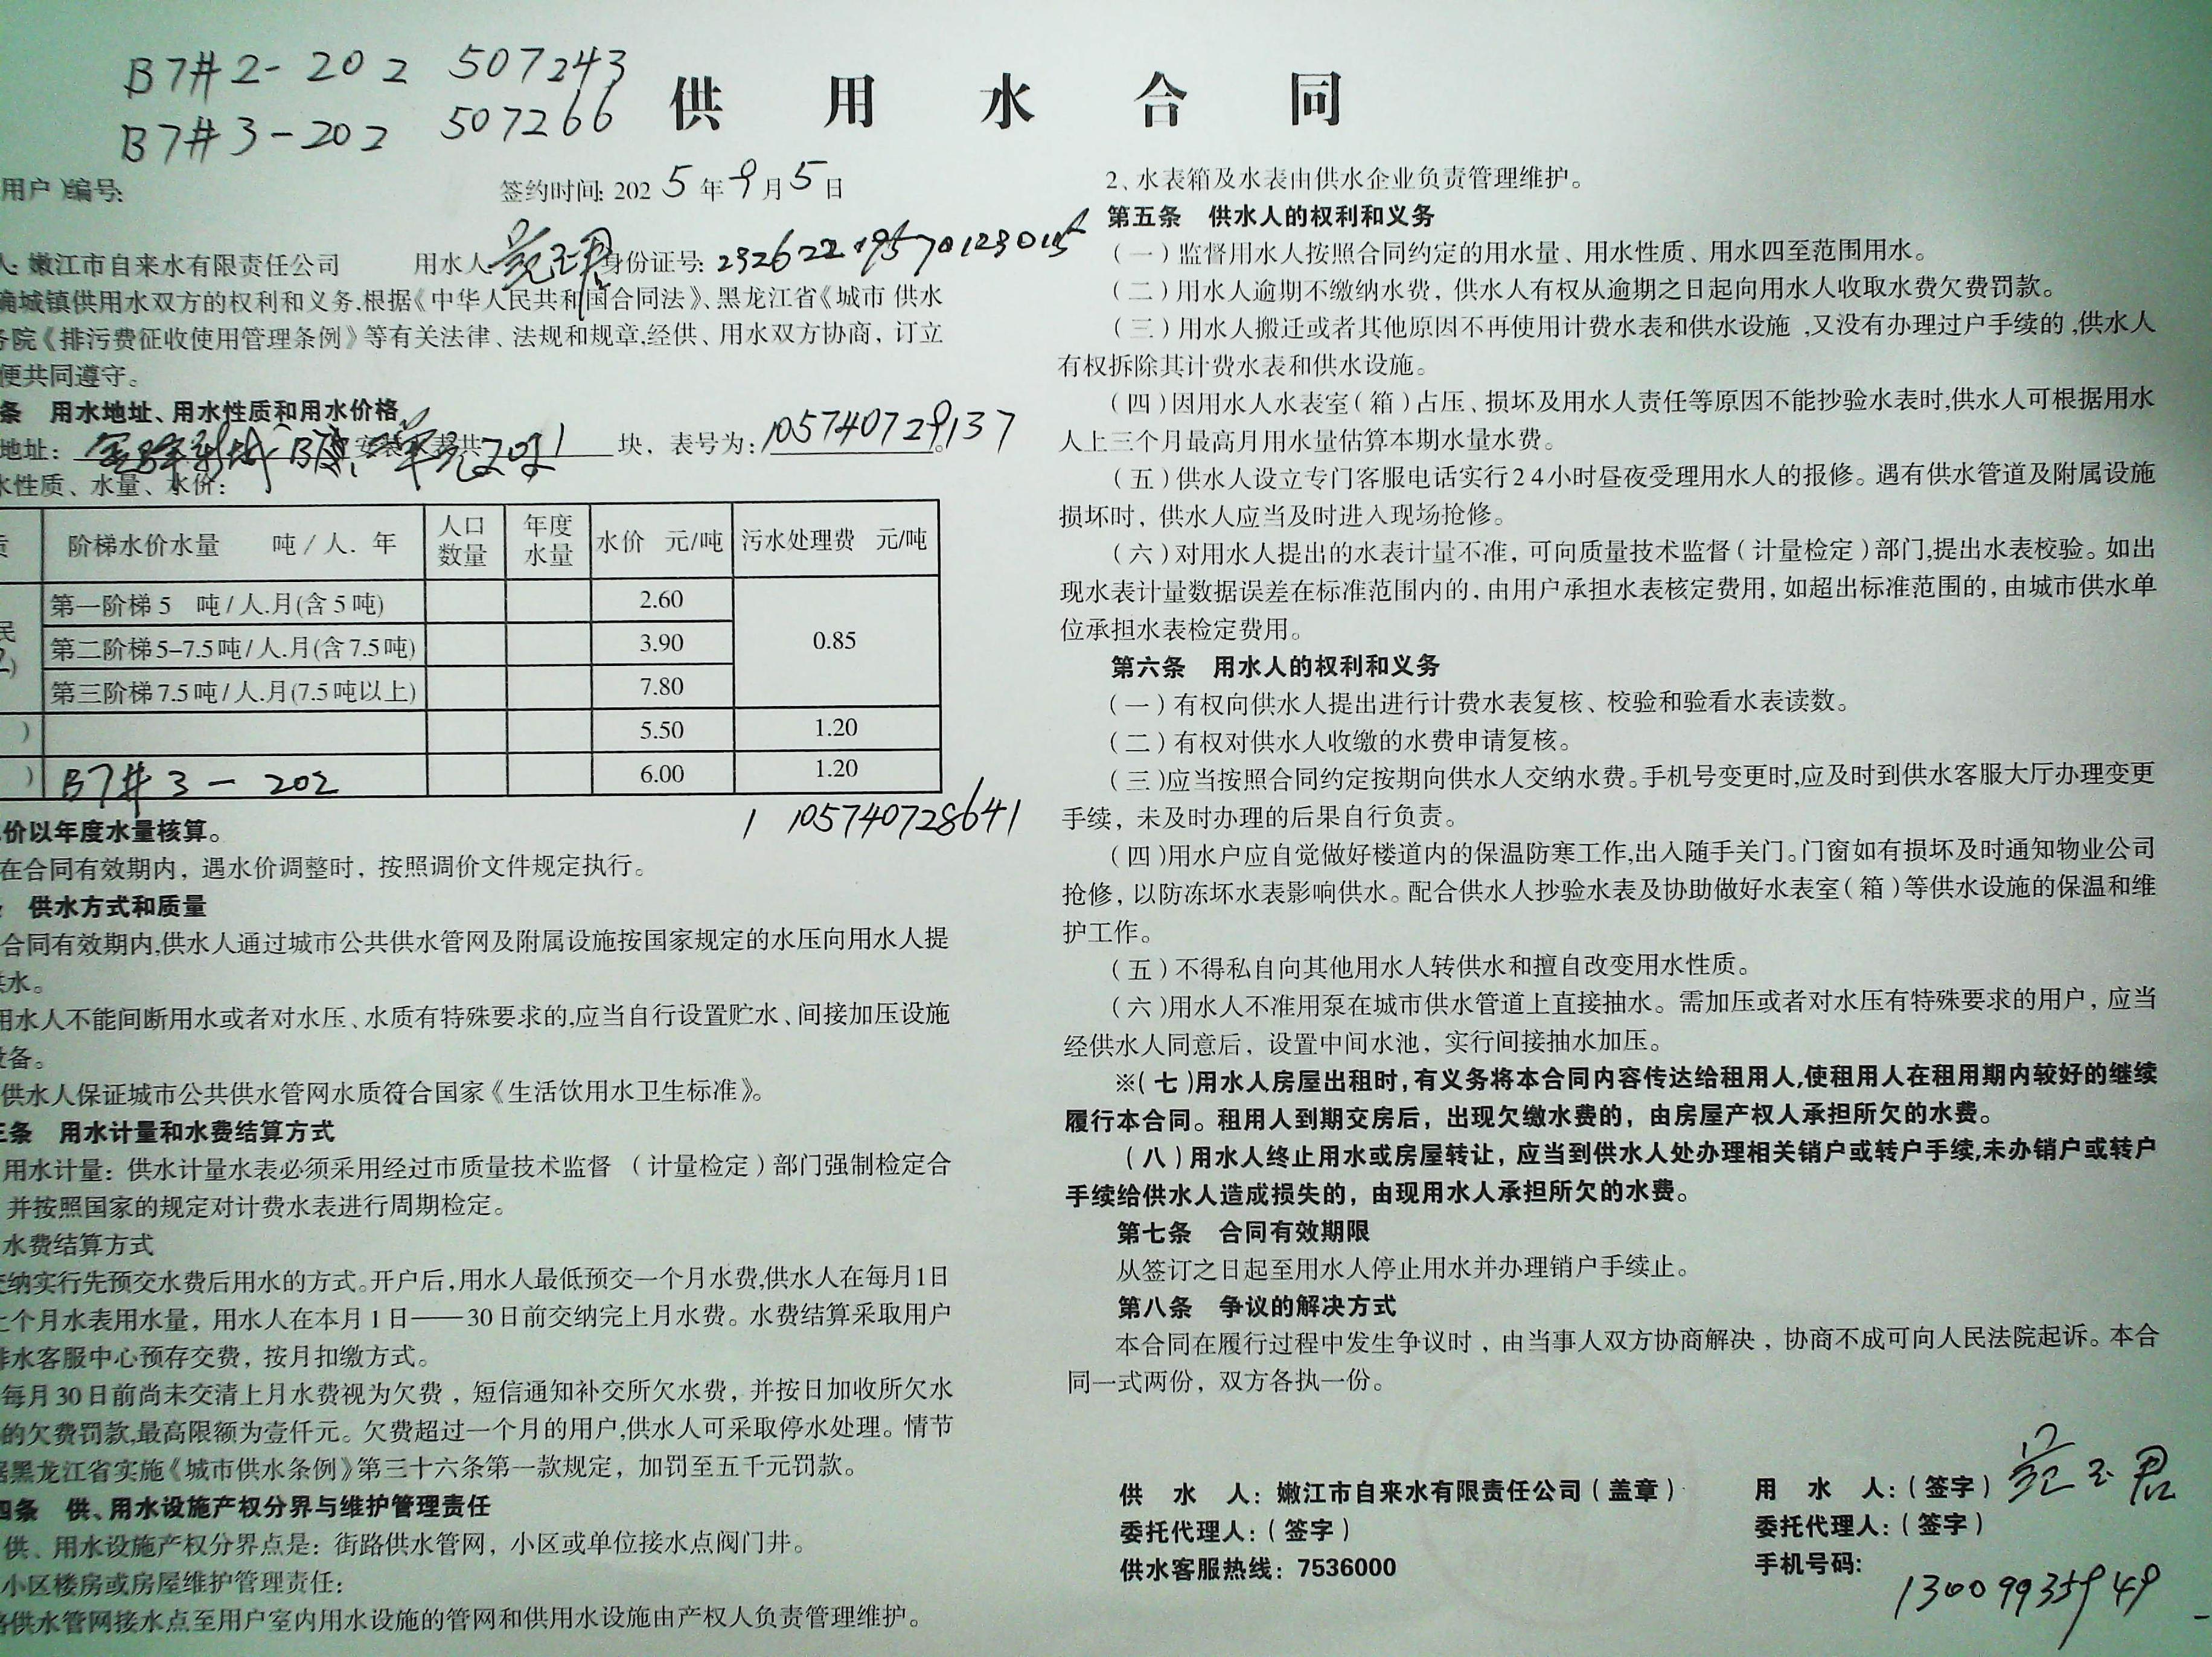 B7#2-202 507243
B7#3-202 507266
供用水合同
用户)编号:
签约时间: 2025年9月5日
人: 嫩江市自来水有限责任公司 用水人: 范玉君 身份证号:
确城镇供用水双方的权利和义务,根据《中华人民共和国合同法》、黑龙江省《城市供水
务院《排污费征收使用管理条例》等有关法律、法规和规章,经供、用水双方协商, 订立
便共同遵守。
条 用水地址、用水性质和用水价格
地址: 块, 表号为: 105740729137。
水性质、水量、水价:
质 阶梯水价水量 吨/人. 年 人口数量 年度水量 水价 元/吨 污水处理费 元/吨
民 第一阶梯5 吨/人.月(含5吨) 2.60
第二阶梯5-7.5吨/人.月(含7.5吨) 3.90 0.85
第三阶梯7.5吨/人.月(7.5吨以上) 7.80
) 5.50 1.20
) B7#3-202 6.00 1.20
1 105740728641
价以年度水量核算。
在合同有效期内, 遇水价调整时, 按照调价文件规定执行。
供水方式和质量
合同有效期内,供水人通过城市公共供水管网及附属设施按国家规定的水压向用水人提
供水。
用水人不能间断用水或者对水压、水质有特殊要求的,应当自行设置贮水、间接加压设施
设备。
供水人保证城市公共供水管网水质符合国家《生活饮用水卫生标准》。
三条 用水计量和水费结算方式
用水计量: 供水计量水表必须采用经过市质量技术监督 (计量检定)部门强制检定合
并按照国家的规定对计费水表进行周期检定。
水费结算方式
交纳实行先预交水费后用水的方式。开户后,用水人最低预交一个月水费,供水人在每月1日
上个月水表用水量, 用水人在本月1日——30日前交纳完上月水费。水费结算采取用户
排水客服中心预存交费, 按月扣缴方式。
每月30日前尚未交清上月水费视为欠费, 短信通知补交所欠水费, 并按日加收所欠水
的欠费罚款,最高限额为壹仟元。欠费超过一个月的用户,供水人可采取停水处理。情节
据黑龙江省实施《城市供水条例》第三十六条第一款规定, 加罚至五千元罚款。
四条 供、用水设施产权分界与维护管理责任
供、用水设施产权分界点是: 街路供水管网, 小区或单位接水点阀门井。
小区楼房或房屋维护管理责任:
路供水管网接水点至用户室内用水设施的管网和供用水设施由产权人负责管理维护。
2、水表箱及水表由供水企业负责管理维护。
第五条 供水人的权利和义务
(一)监督用水人按照合同约定的用水量、用水性质、用水四至范围用水。
(二)用水人逾期不缴纳水费, 供水人有权从逾期之日起向用水人收取水费欠费罚款。
(三)用水人搬迁或者其他原因不再使用计费水表和供水设施,又没有办理过户手续的,供水人
有权拆除其计费水表和供水设施。
(四)因用水人水表室(箱)占压、损坏及用水人责任等原因不能抄验水表时,供水人可根据用水
人上三个月最高月用水量估算本期水量水费。
(五)供水人设立专门客服电话实行24小时昼夜受理用水人的报修。遇有供水管道及附属设施
损坏时, 供水人应当及时进入现场抢修。
(六)对用水人提出的水表计量不准, 可向质量技术监督(计量检定)部门,提出水表校验。如出
现水表计量数据误差在标准范围内的, 由用户承担水表核定费用, 如超出标准范围的, 由城市供水单
位承担水表检定费用。
第六条 用水人的权利和义务
(一)有权向供水人提出进行计费水表复核、校验和验看水表读数。
(二)有权对供水人收缴的水费申请复核。
(三)应当按照合同约定按期向供水人交纳水费。手机号变更时,应及时到供水客服大厅办理变更
手续, 未及时办理的后果自行负责。
(四)用水户应自觉做好楼道内的保温防寒工作,出入随手关门。门窗如有损坏及时通知物业公司
抢修, 以防冻坏水表影响供水。配合供水人抄验水表及协助做好水表室(箱)等供水设施的保温和维
护工作。
(五)不得私自向其他用水人转供水和擅自改变用水性质。
(六)用水人不准用泵在城市供水管道上直接抽水。需加压或者对水压有特殊要求的用户, 应当
经供水人同意后, 设置中间水池, 实行间接抽水加压。
※(七)用水人房屋出租时, 有义务将本合同内容传达给租用人,使租用人在租用期内较好的继续
履行本合同。租用人到期交房后, 出现欠缴水费的, 由房屋产权人承担所欠的水费。
(八)用水人终止用水或房屋转让, 应当到供水人处办理相关销户或转户手续,未办销户或转户
手续给供水人造成损失的, 由现用水人承担所欠的水费。
第七条 合同有效期限
从签订之日起至用水人停止用水并办理销户手续止。
第八条 争议的解决方式
本合同在履行过程中发生争议时, 由当事人双方协商解决, 协商不成可向人民法院起诉。本合
同一式两份, 双方各执一份。
供 水 人: 嫩江市自来水有限责任公司(盖章)
委托代理人:(签字)
供水客服热线: 7536000
用 水 人:(签字) 范玉君
委托代理人:(签字)
手机号码:
13009935949